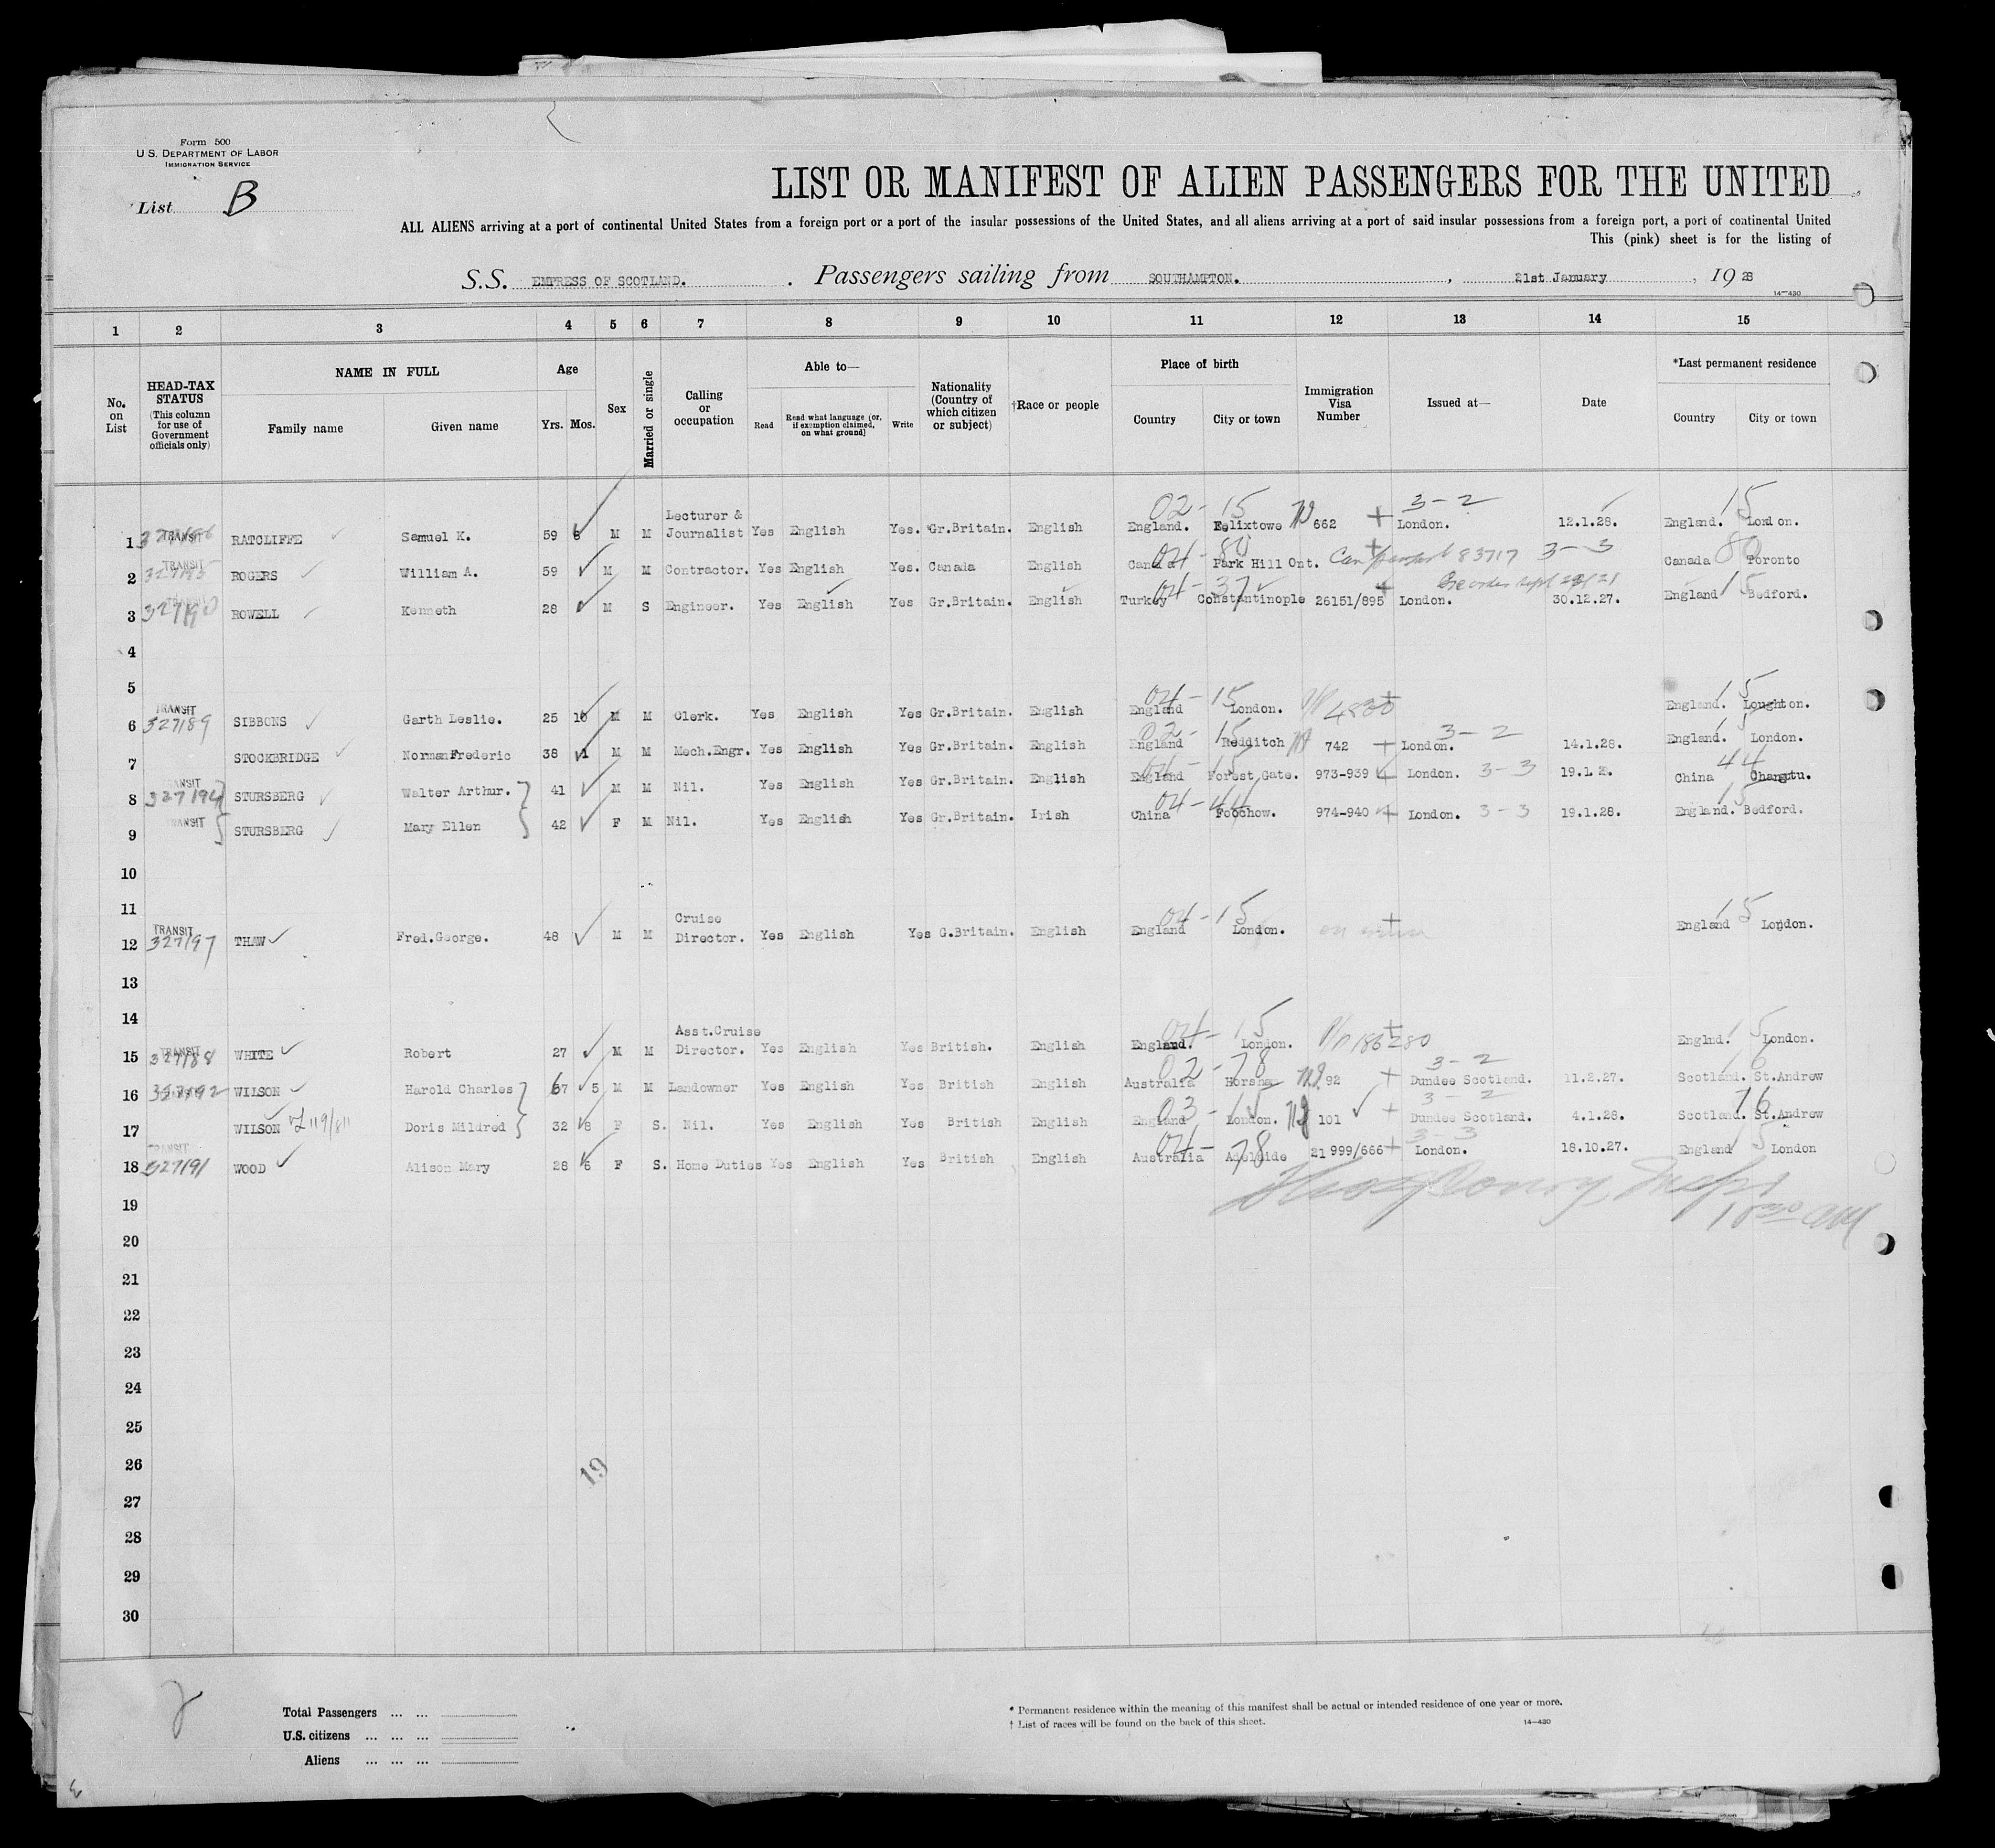 Form 500
U.S. DEPARTMENT OF LABOR
IMMIGRATION SERVICE
List B
LIST OR MANIFEST OF ALIEN PASSENGERS FOR THE UNITED
ALL ALIENS arriving at a port of continental United States from a foreign port or a port of the insular possessions of the United States, and all aliens arriving at a port of said insular possessions from a foreign port, a port of continental United
This (pink) sheet is for the listing of
S.S. EMPRESS OF SCOTLAND. Passengers sailing from SOUTHAMPTON. , 21st January , 19 28
14—430
1 2 3 4 5 6 7 8 9 10 11 12 13 14 15
No. on List
HEAD-TAX STATUS (This column for use of Government officials only)
NAME IN FULL
Family name Given name
Age
Yrs. Mos.
Sex
Married or single
Calling or occupation
Able to—
Read Read what language (or, if exemption claimed, on what ground) Write
Nationality (Country of which citizen or subject)
†Race or people
Place of birth
Country City or town
Immigration Visa Number
Issued at—
Date
*Last permanent residence
Country City or town
02-15 3-2 15
1 TRANSIT RATCLIFFE Samuel K. 59 6 M M Lecturer & Journalist Yes English Yes. Gr.Britain. English England. Felixtowe 662 London. 12.1.28. England. London.
04-80 3-3 80
2 TRANSIT ROGERS William A. 59 M M Contractor. Yes English Yes. Canada English Canada Park Hill Ont. 83717 Canada Toronto
04-37 15
3 327190 ROWELL Kenneth 28 M S Engineer. Yes English Yes Gr.Britain. English Turkey Constantinople 26151/895 London. 30.12.27. England Bedford.
4
5
04-15 15
6 TRANSIT 327189 SIBBONS Garth Leslie. 25 10 M M Clerk. Yes English Yes Gr.Britain. English England London. England. Loughton.
02-15 3-2 15
7 STOCKBRIDGE Norman Frederic 38 1 M M Mech.Engr. Yes English Yes Gr.Britain. English England Redditch 742 London. 14.1.28. England. London.
44
8 TRANSIT 327194 STURSBERG Walter Arthur. 41 M M Nil. Yes English Yes Gr.Britain. English England Forest Gate. 973-939 London. 3-3 China
04-44 15
9 TRANSIT STURSBERG Mary Ellen 42 F M Nil. Yes English Yes Gr.Britain. Irish China Foochow. 974-940 London. 3-3 19.1.28. England. Bedford.
10
11
04-15 15
12 TRANSIT 327197 THAW Fred.George. 48 M M Cruise Director. Yes English Yes G.Britain. English England London. England London.
13
14
04-15 15
15 TRANSIT 327188 WHITE Robert 27 M M Asst.Cruise Director. Yes English Yes British. English England. London. Englnd. London.
02-78 3-2 16
16 327192 WILSON Harold Charles 67 5 M M Landowner Yes English Yes British English Australia Horsham 92 Dundee Scotland. 11.2.27. Scotland. St.Andrew
03-15 3-2 16
17 WILSON Doris Mildred 32 8 F S. Nil. Yes English Yes British English England London. 101 Dundee Scotland. 4.1.28. Scotland. St.Andrew
04-78 3-3 15
18 TRANSIT 327191 WOOD Alison Mary 28 6 F S. Home Duties Yes English Yes British English Australia Adelaide 21999/666 London. 18.10.27. England London
19
20
21
22
23
24
25
26
19
27
28
29
30
Total Passengers ... ...
U.S. citizens ... ... ...
Aliens ... ... ...
* Permanent residence within the meaning of this manifest shall be actual or intended residence of one year or more.
† List of races will be found on the back of this sheet.
14—430